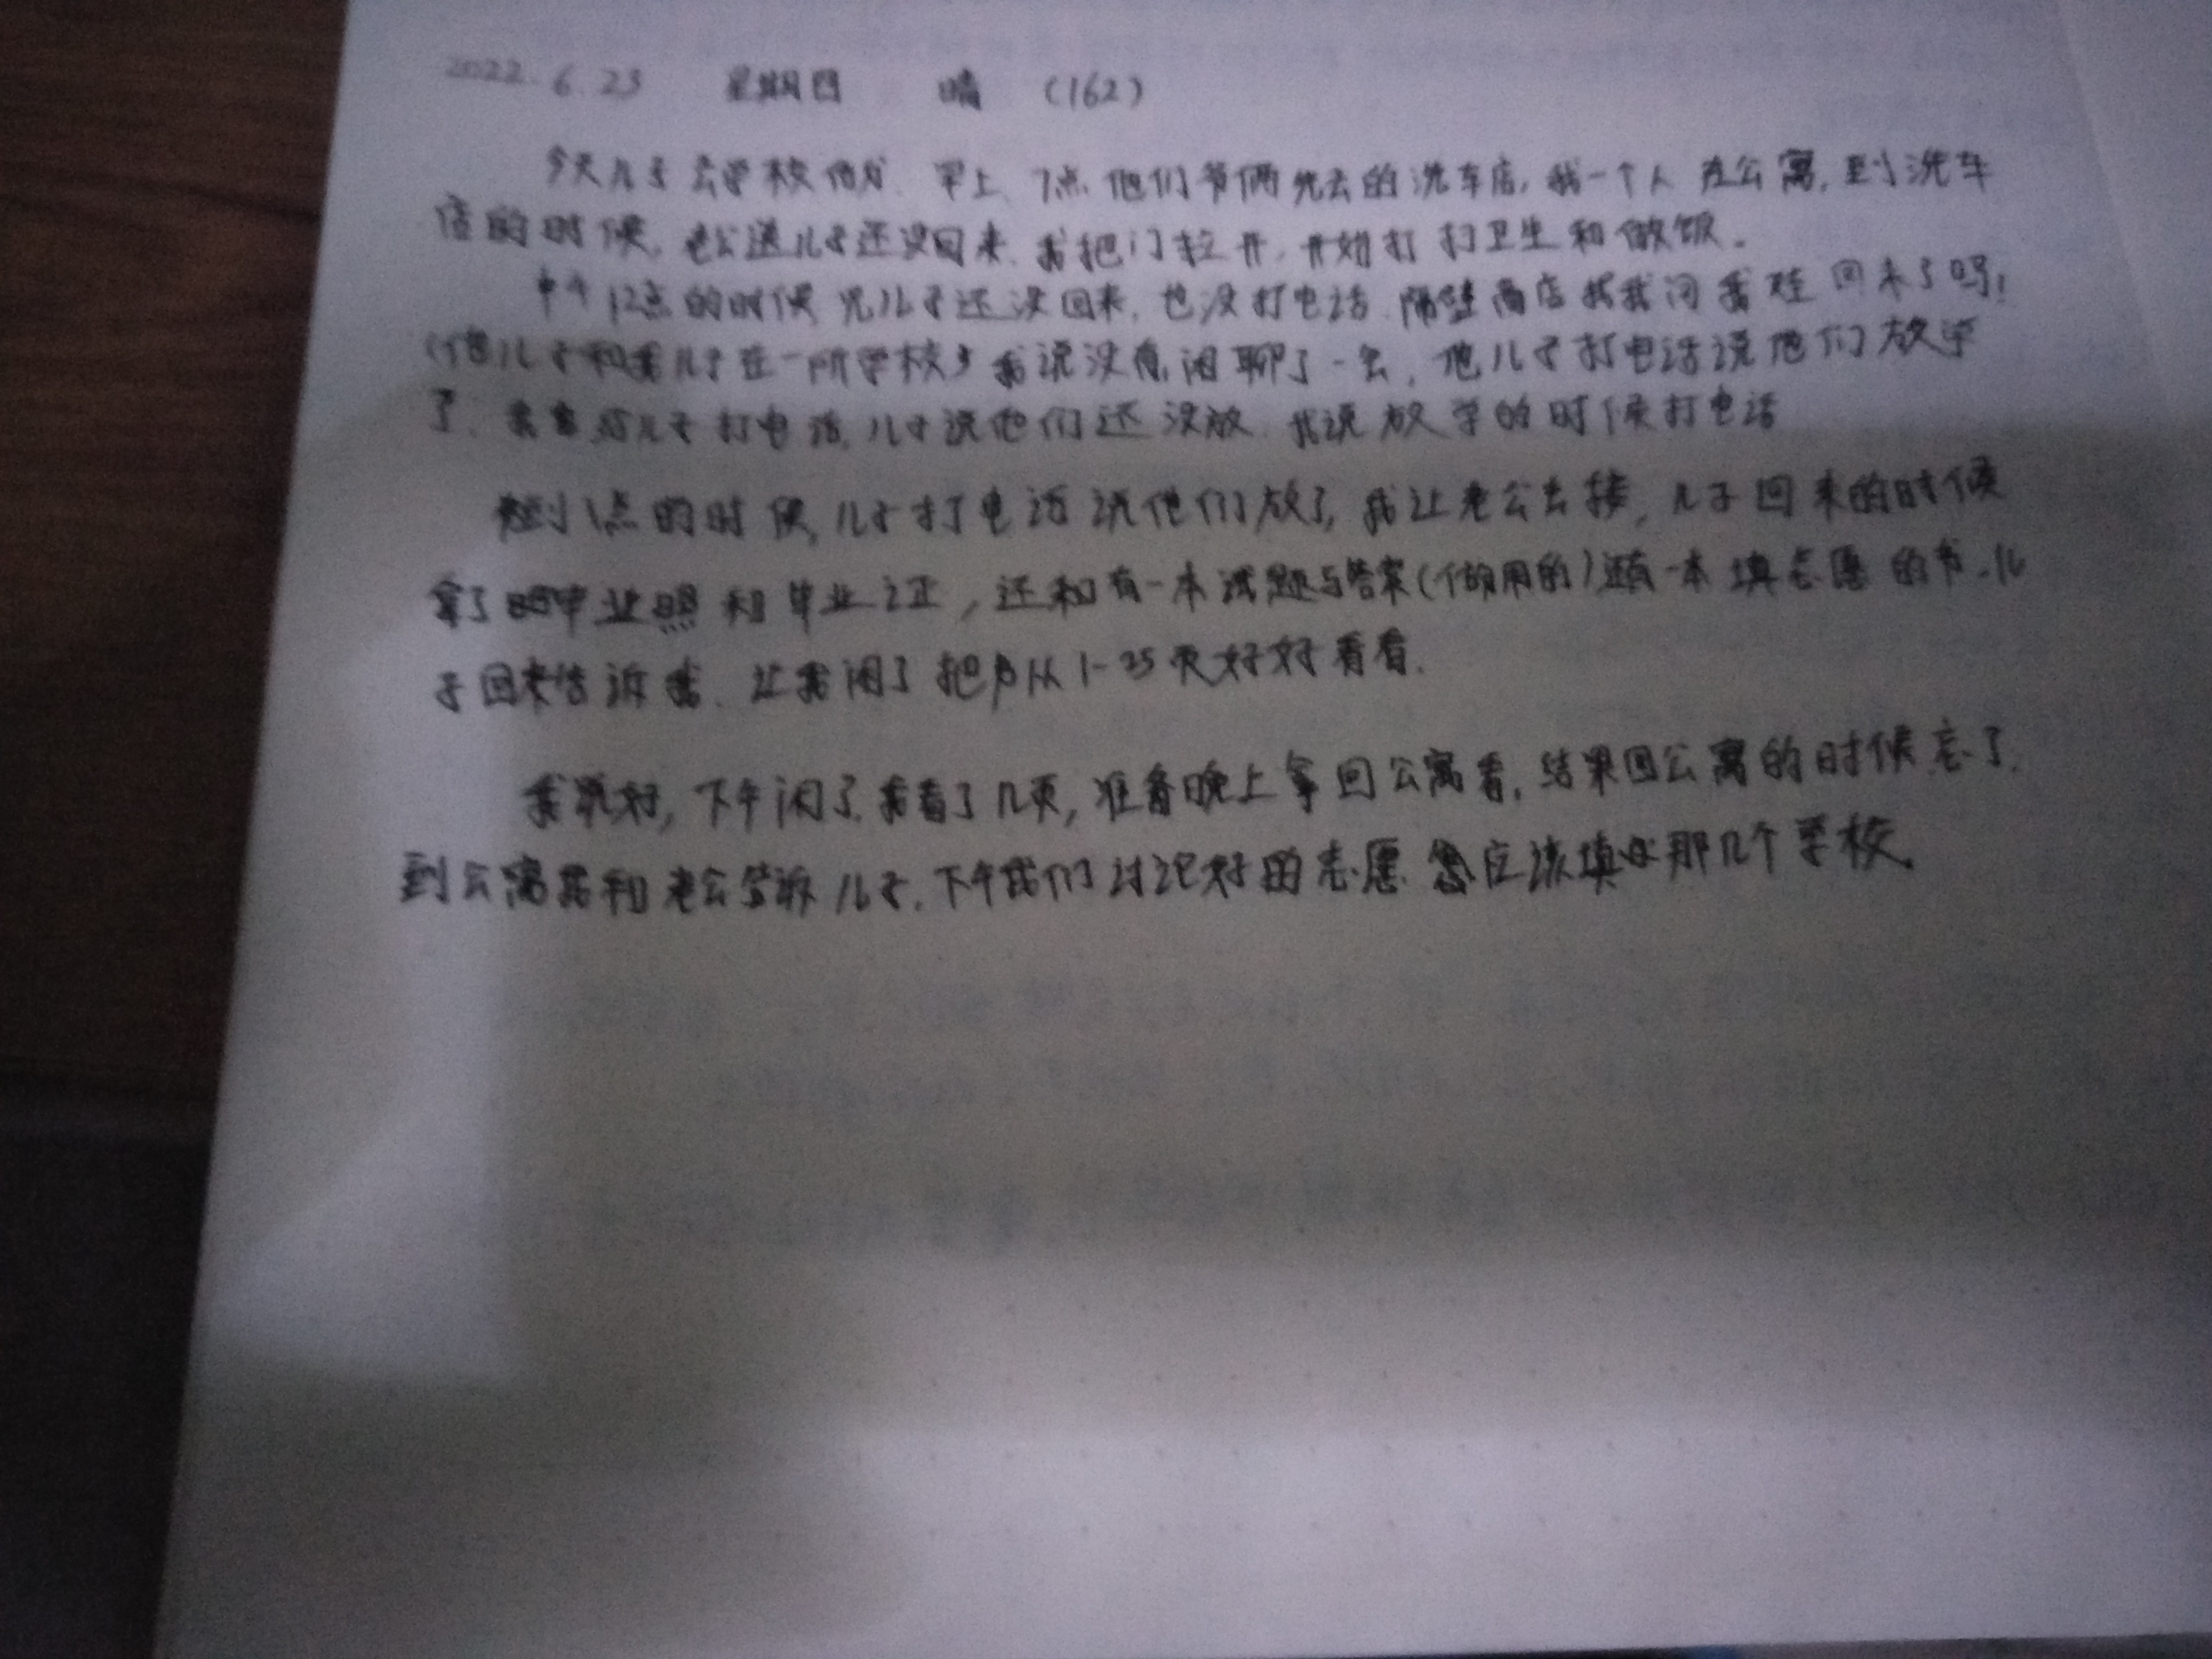 2022.6.23 星期四 晴 (162)
今天儿子去学校估分.早上7点他们爷俩先去的洗车店,我一个人在公寓,到洗车
店的时候,老公送儿子还没回来.我把门拉开,开始打扫卫生和做饭.
中午12点的时候见儿子还没回来,也没打电话.隔壁商店 我问我娃回来了吗!
(他儿子和我儿子在一所学校)我说没 闲聊了一会,他儿子打电话说他们放学
了. 给儿子打电话,儿子说他们还没放.我说放学的时候打电话
到1点的时候,儿子打电话说他们放了,我让老公去接,儿子回来的时候
拿了 毕业照和毕业证,还和有一本试题与答案(估分用的)还有一本填志愿的书.儿
子回来告诉我.让我闲了把 从1-25页好好看看.
我说好,下午闲了.我看了几页,准备晚上拿回公寓看,结果回公寓的时候忘了.
到公寓 和老公告诉儿子.下午我们讨论好的志愿 应该填 那几个学校.